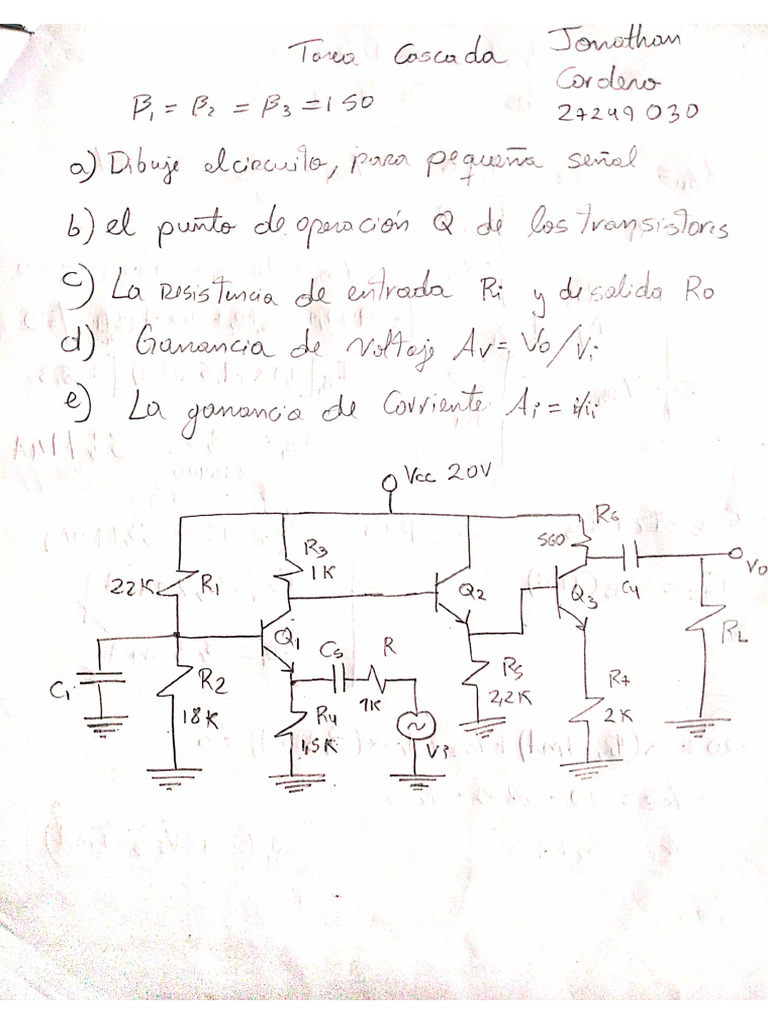 Tarea Cascada Jonathan
Cordero
27249030
β1 = β2 = β3 = 150
a) Dibuje el circuito, para pequeña señal
b) el punto de operación Q de los transistores
c) La resistencia de entrada Ri y de salida Ro
d) Ganancia de voltaje Av = Vo/Vi
e) La ganancia de Corriente Ai = i/ii
Vcc 20V
R6
560
R3
1K
22K R1
Q2
Q3
C4
Vo
Q1
C5 R
RL
C1
R2
18K
R5
2,2K
R7
2K
1K
R4
1,5K